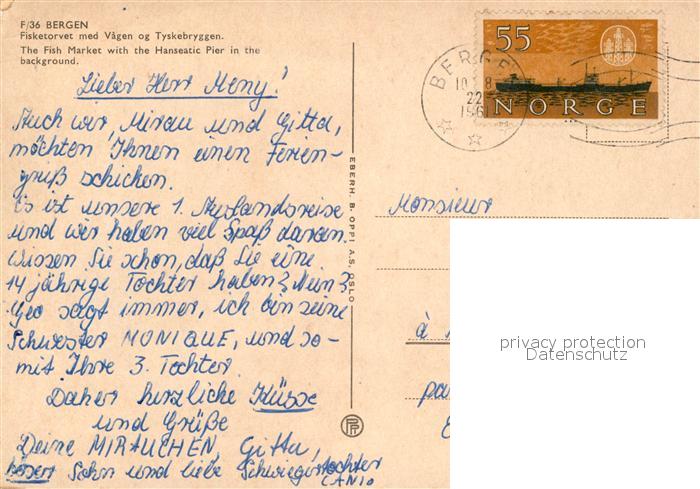 F/36 BERGEN
Fisketorvet med Vågen og Tyskebryggen.
The Fish Market with the Hanseatic Pier in the
background.
Lieber Herr Meny!
Auch wir, Mirau und Gitta,
möchten Ihnen einen Ferien-
gruß schicken.
Es ist unsere 1. Auslandsreise
und wir haben viel Spaß daran.
Wissen Sie schon, daß Sie eine
14 jährige Tochter haben? Nein?
Geo sagt immer, ich bin seine
Schwester MONIQUE, und so-
mit Ihre 3. Tochter.
Daher herzliche Küsse
und Grüße
Deine MIRAUCHEN, Gitta,
Sohn und liebe Schwiegertochter
EBERH. B. OPPI A.S. OSLO
55
NORGE
BERGE
22
196
Monsieur
à
pa
privacy protection
Datenschutz